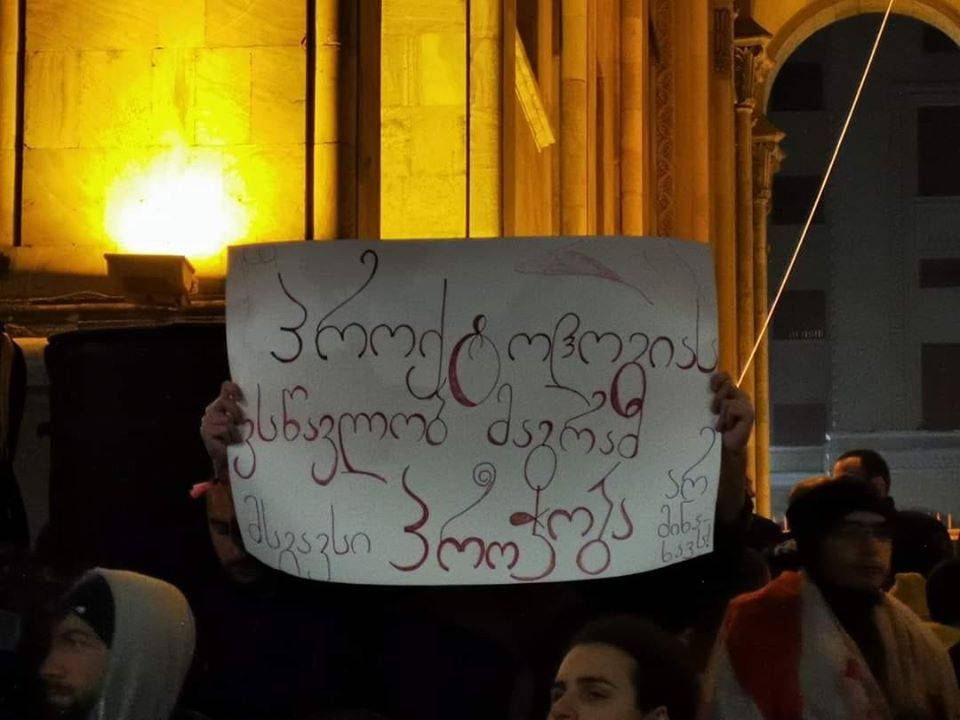 პროქტოლოგიას
ვსწავლობ მაგრამ
მსგავსი პროჭობა
არ
მინა-
ხავს!